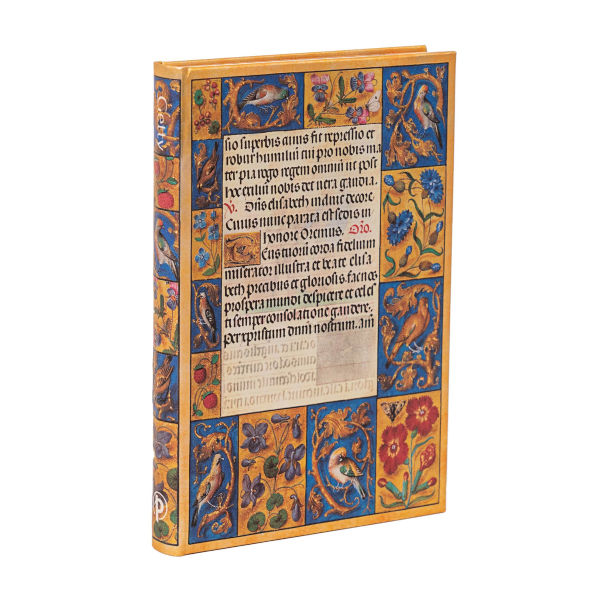 Getty
sio superbis cuius fit repressio et
robur humiliū tui pro nobis ma
ter pia rogo regem omniū ut post
hoc exiliū nobis det vera gaudia.
V. Dn̄s elisabeth induit decore
Cuius nunc parata est sedis in
honore Oremus. Oro.
Deus tuorū corda fidelium
miserator illustra et beate elisa
beth precibus et gloriosis fac nos
prospera mundi despicere et celes
ti semper consolatione gaudere.
per xpristum dnm̄ nostrum. am̄